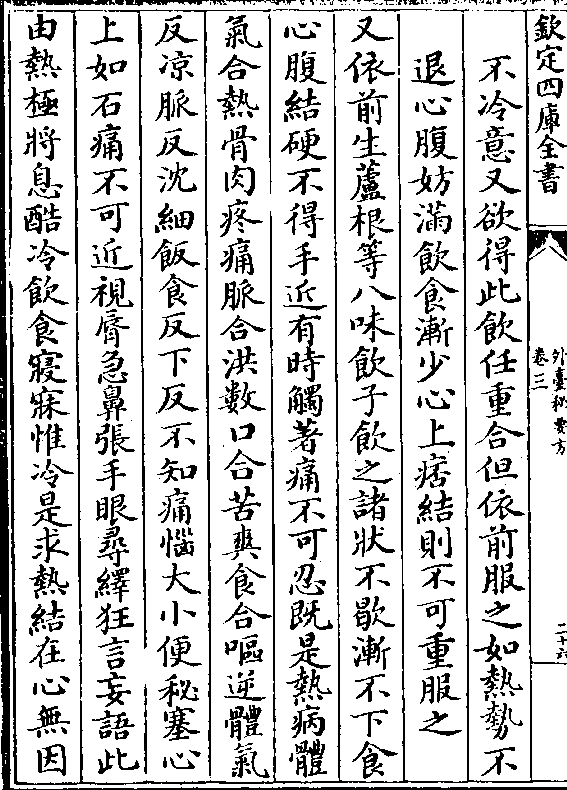 欽定四庫全書
外臺秘要方
卷三
二十六
不冷意又欲得此飲任重合但依前服之如熱勢不
退心腹妨滿飲食漸少心上痞結則不可重服之
又依前生蘆根等八味飲子飲之諸狀不歇漸不下食
心腹結硬不得手近有時觸著痛不可忍既是熱病體
氣合熱骨肉疼痛脈合洪數口合苦爽食合嘔逆體氣
反凉脈反沈細飯食反下反不知痛惱大小便秘塞心
上如石痛不可近視脣急鼻張手眼尋繹狂言妄語此
由熱極將息酷冷飲食寢寐惟冷是求熱結在心無因